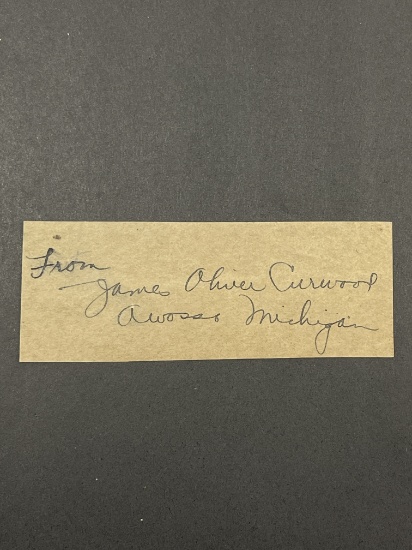 From
James Oliver Curwood
Owosso Michigan